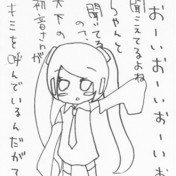 おーいおーいおーいお
聞こえてるよね
ちゃんと
聞いてる
の?
天下の
初音さんが
キミを呼んでいるんだがて